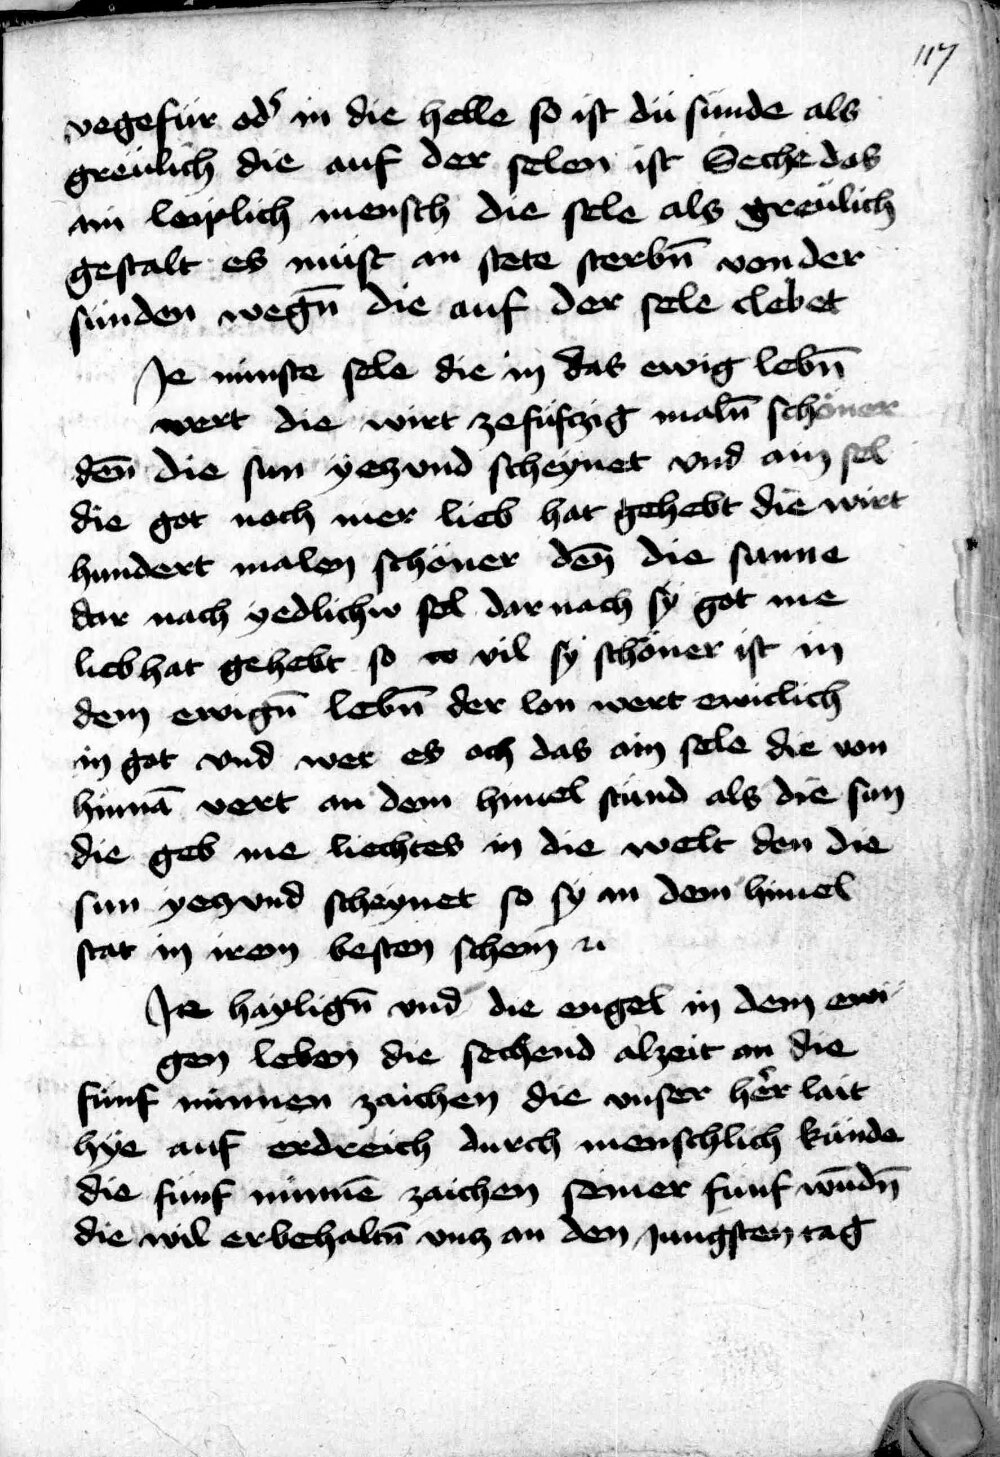 117
vegefür od' in die helle so ist dü sünde als
greülich die auf der selen ist Seche das
ain leiplich mensch die sele als greülich
gestalt es müst an stete sterbn̄ von der
sünden wegn̄ die auf der sele clebet
Je minste sele die in das ewig lebn̄
wert die wirt ze fufczig maln̄ schöner
den̄ die sun yeczund scheynet vnd ain sel
die got noch mer lieb hat gehebt die wirt
hundert malen schöner den̄ die sunne
dar nach yedlichw sel dar nach sÿ got me
lieb hat gehebt so vil sÿ schöner ist in
dem ewign̄ lebn̄ der lon wert ewiclich
in got vnd wer es och das ain sele die von
hinnā vert an dem himel stünd als die sun
die geb me liechtes in die welt den die
sun yeczund scheynet so sÿ an dem himel
stat in irem besten schein
Jte haylign̄ vnd die engel in dem ewi
gen leben die sechend alzeit an die
fünf minnen zaichen die vnser her̄ lait
hÿe auf erdreich durch menschlich künde
die fünf minnē zaichen seiner fünf wūdn̄
die wil er behaltn̄ vncz an den Jungsten tag